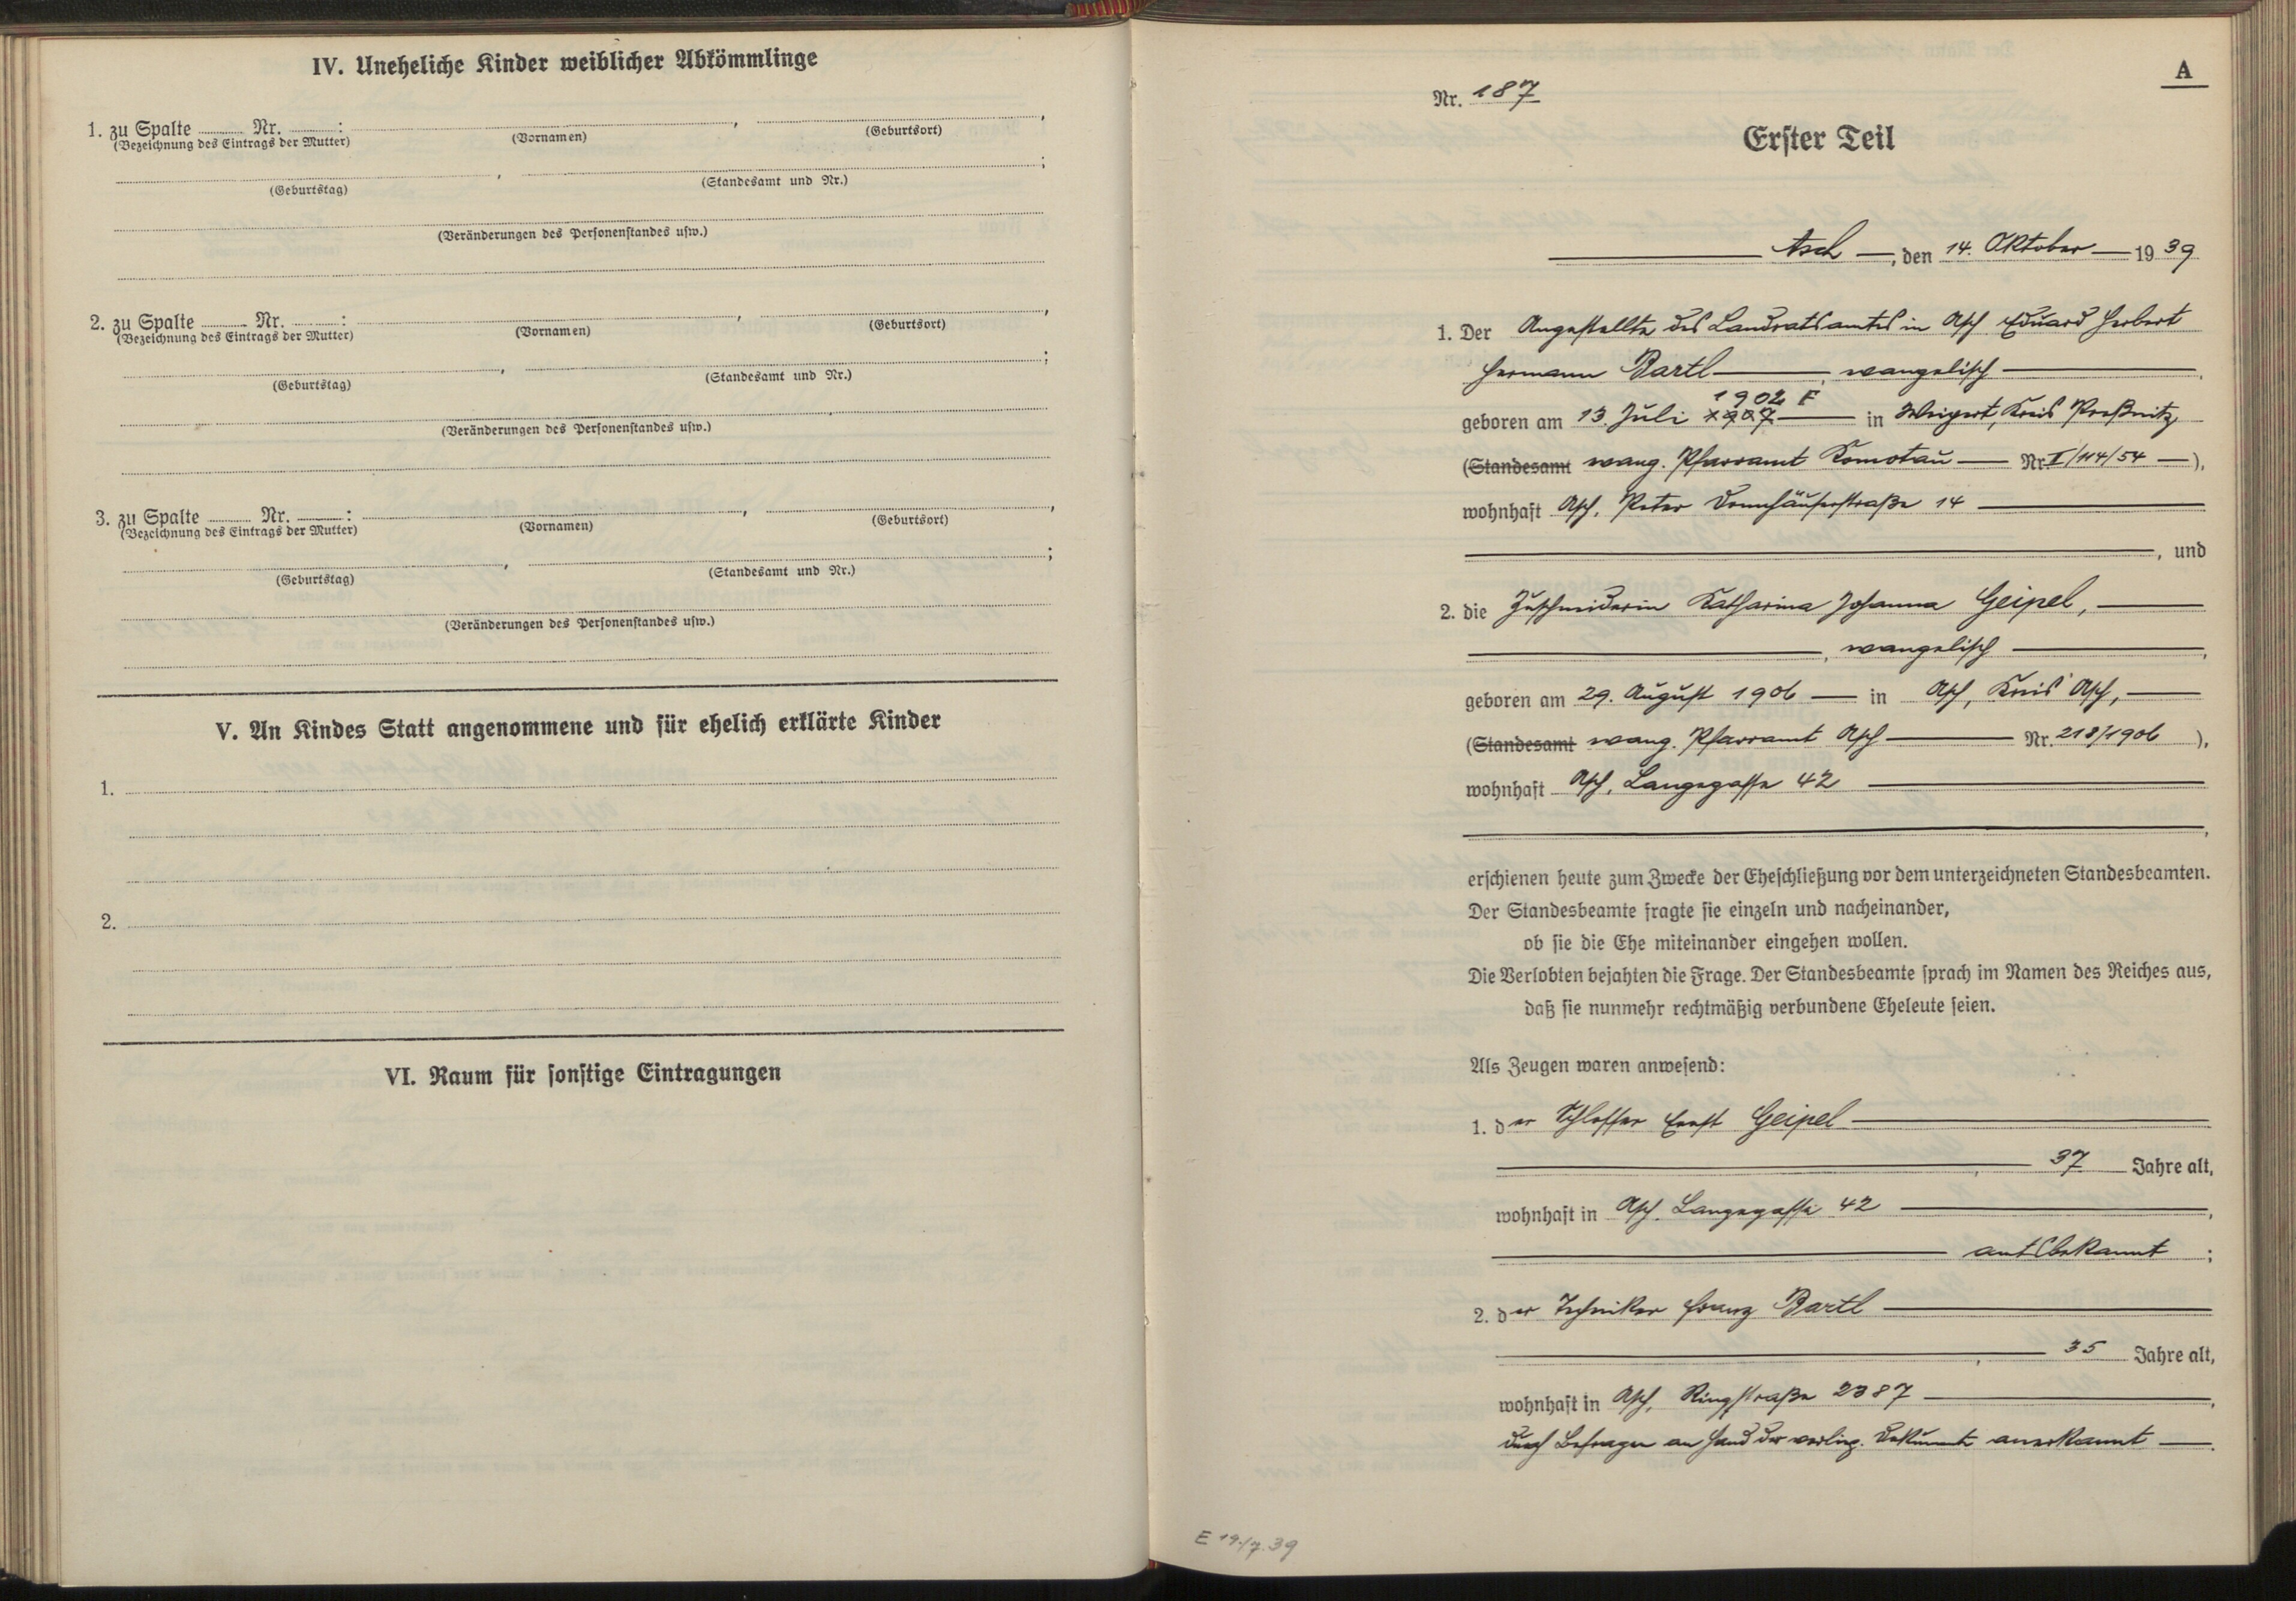 IV. Uneheliche Kinder weiblicher Abkömmlinge
1. zu Spalte ........ Nr. ........ :
(Bezeichnung des Eintrags der Mutter) (Vornamen) (Geburtsort)
(Geburtstag) (Standesamt und Nr.)
(Veränderungen des Personenstandes usw.)
2. zu Spalte ........ Nr. ........ :
(Bezeichnung des Eintrags der Mutter) (Vornamen) (Geburtsort)
(Geburtstag) (Standesamt und Nr.)
(Veränderungen des Personenstandes usw.)
3. zu Spalte ........ Nr. ........ :
(Bezeichnung des Eintrags der Mutter) (Vornamen) (Geburtsort)
(Geburtstag) (Standesamt und Nr.)
(Veränderungen des Personenstandes usw.)
V. An Kindes Statt angenommene und für ehelich erklärte Kinder
1.
2.
VI. Raum für sonstige Eintragungen
A
Nr. 187
Erster Teil
Asch, den 14. Oktober 1939
1. Der Angestellte des Landratsamtes in Asch Eduard Herbert
Hermann Bartl, evangelisch,
1902 F
geboren am 13. Juli 1907 in Weipert, Kreis Preßnitz
(Standesamt evang. Pfarramt Komotau Nr. I/114/54),
wohnhaft Asch, Peter Donnhäuserstraße 14
, und
2. die Zuschneiderin Katharina Johanna Geipel,
, evangelisch,
geboren am 29. August 1906 in Asch, Kreis Asch,
(Standesamt evang. Pfarramt Asch Nr. 218/1906),
wohnhaft Asch, Langegasse 42
,
erschienen heute zum Zwecke der Eheschließung vor dem unterzeichneten Standesbeamten.
Der Standesbeamte fragte sie einzeln und nacheinander,
ob sie die Ehe miteinander eingehen wollen.
Die Verlobten bejahten die Frage. Der Standesbeamte sprach im Namen des Reiches aus,
daß sie nunmehr rechtmäßig verbundene Eheleute seien.
Als Zeugen waren anwesend:
1. der Schlosser Ernst Geipel
, 37 Jahre alt,
wohnhaft in Asch, Langegasse 42,
amtsbekannt;
2. der Techniker Franz Bartl
, 35 Jahre alt,
wohnhaft in Asch, Ringstraße 2387,
durch Befragen an Hand der vorlieg. Dokumente anerkannt.
E 19./7.39